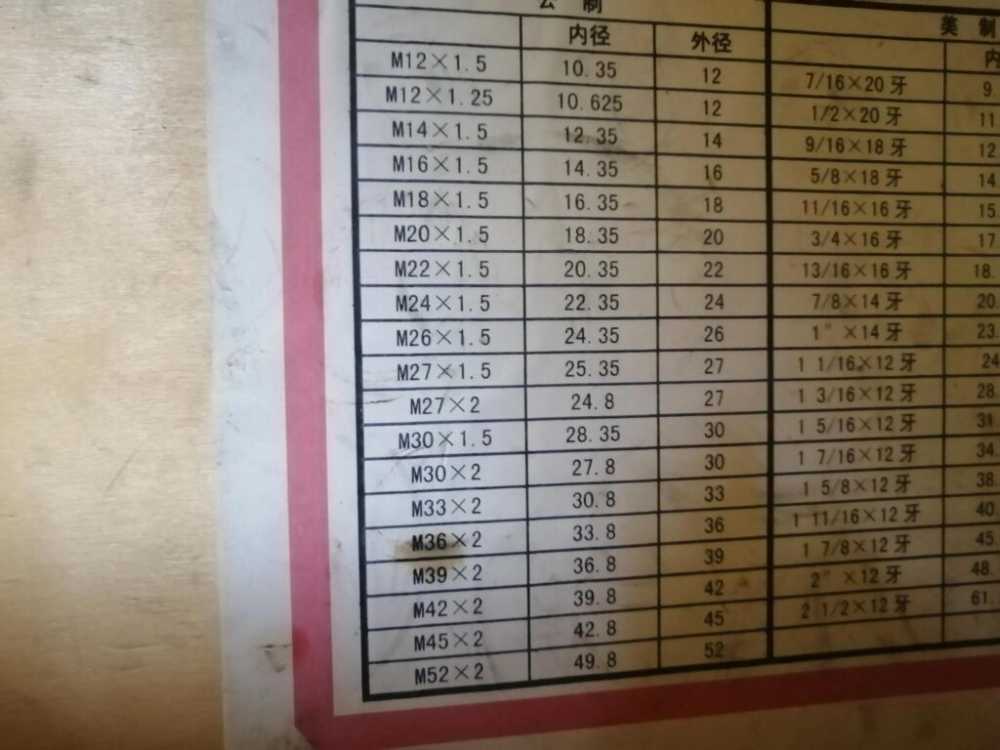 公 制 美 制
内径 外径 内
M12×1.5 10.35 12 7/16×20 牙 9.
M12×1.25 10.625 12 1/2×20 牙 11
M14×1.5 12.35 14 9/16×18 牙 12
M16×1.5 14.35 16 5/8×18 牙 14
M18×1.5 16.35 18 11/16×16 牙 15.
M20×1.5 18.35 20 3/4×16 牙 17
M22×1.5 20.35 22 13/16×16 牙 18.
M24×1.5 22.35 24 7/8×14 牙 20.
M26×1.5 24.35 26 1" ×14 牙 23.
M27×1.5 25.35 27 1 1/16×12 牙 24
M27×2 24.8 27 1 3/16×12 牙 28
M30×1.5 28.35 30 1 5/16×12 牙 31
M30×2 27.8 30 1 7/16×12 牙 34.
M33×2 30.8 33 1 5/8×12 牙 38.
M36×2 33.8 36 1 11/16×12 牙 40
M39×2 36.8 39 1 7/8×12 牙 45.
M42×2 39.8 42 2" ×12 牙 48.
M45×2 42.8 45 2 1/2×12 牙 61.
M52×2 49.8 52